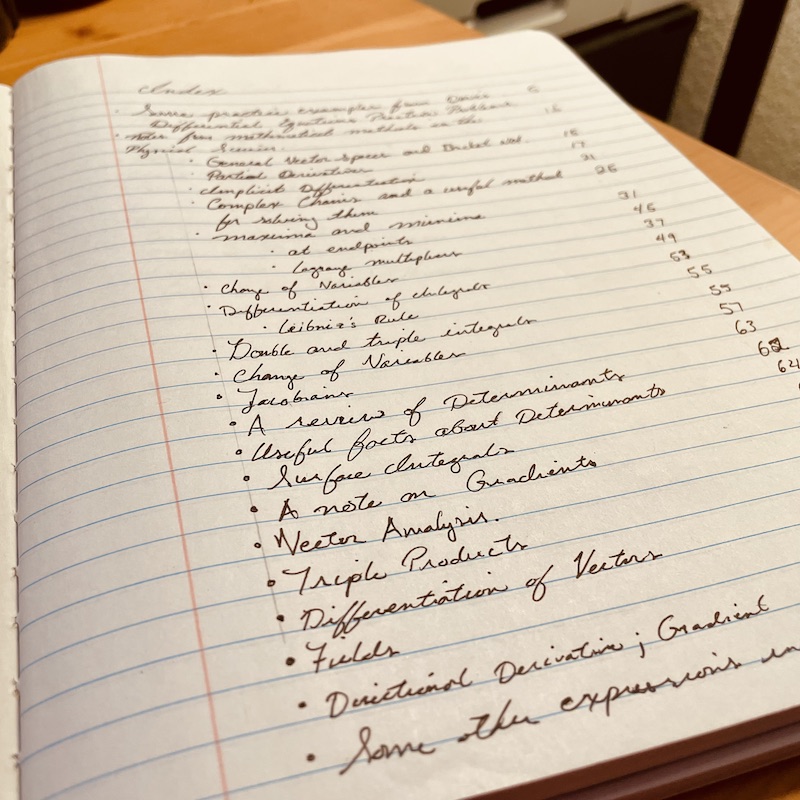 Index
· Some practice examples from 6
Differential Equations Practice Problems.
· Notes from mathematical methods in the 16
Physical Sciences.
· General Vector Spaces and 16
· Partial Derivatives 17
· Implicit Differentiation 21
· Complex Chains and a useful method 25
for solving them
· Maxima and minima 31
· at endpoints 45
· Lagrange multipliers 37
· Change of Variables 49
· Differentiation of Integrals 53
· Leibniz's Rule 55
· Double and triple integrals 55
· Change of Variables 57
· Jacobians 63
· A review of Determinants 62
· Useful facts about Determinants 64
· Surface Integrals
· A note on Gradients
· Vector Analysis.
· Triple Products
· Differentiation of Vectors
· Fields
· Directional Derivative; Gradient
· Some other expressions in